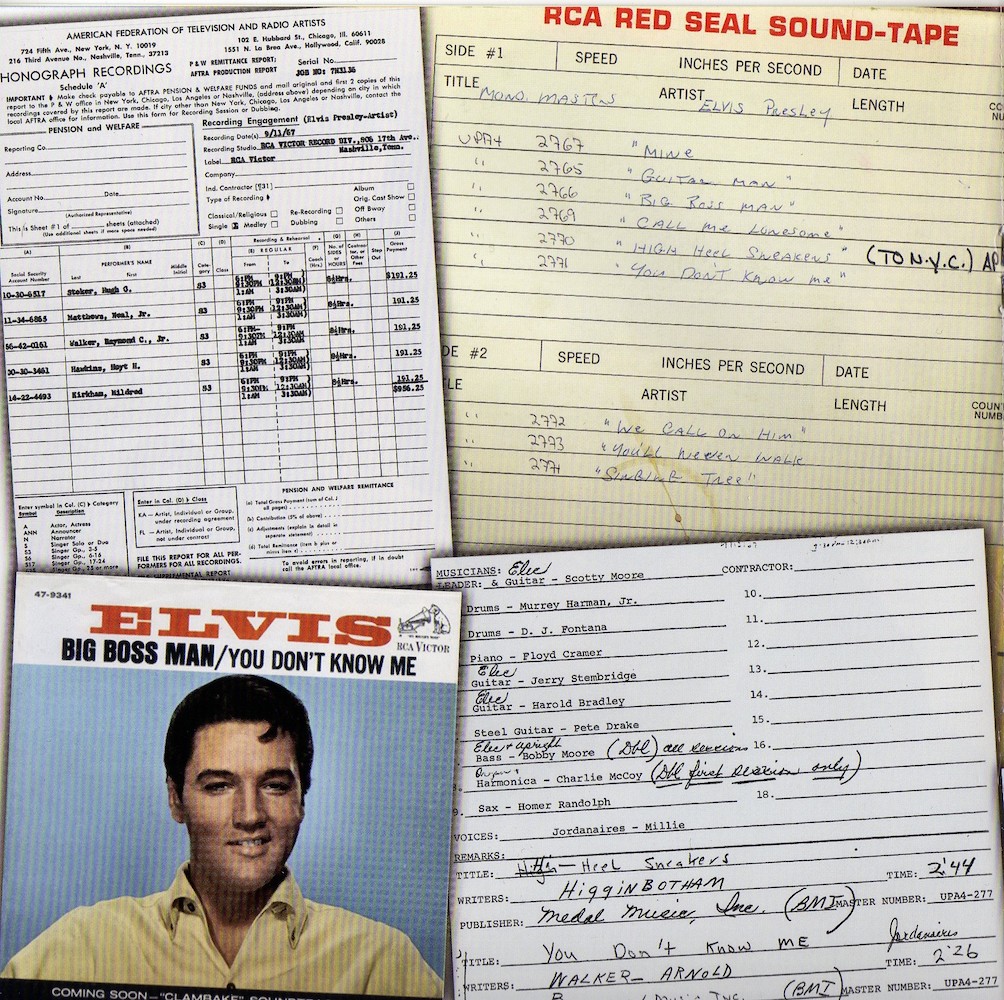 AMERICAN FEDERATION OF TELEVISION AND RADIO ARTISTS
724 Fifth Ave., New York, N. Y. 10019
102 E. Hubbard St., Chicago, Ill. 60611
216 Third Avenue No., Nashville, Tenn. 37213
1551 N. La Brea Ave., Hollywood, Calif. 90028
HONOGRAPH RECORDINGS
Schedule 'A'
P & W REMITTANCE REPORT;
Serial No.
AFTRA PRODUCTION REPORT
JOB NO: 7H3136
IMPORTANT Make check payable to AFTRA PENSION & WELFARE FUNDS and mail original and first 2 copies of this
report to the P & W office in New York, Chicago, Los Angeles or Nashville, (address above) depending on city in which
recordings covered by this report are made. If city other than New York, Chicago, Los Angeles or Nashville, contact the
local AFTRA office for information. Use this form for Recording Session or Dubbing.
PENSION and WELFARE
Reporting Co.
Address
Account No. Date
Signature
(Authorized Representative)
This is Sheet #1 of sheets (attached)
(Use additional sheets if more space needed)
Recording Engagement (Elvis Presley-Artist)
Recording Date(s) 9/11/67
Recording Studio RCA VICTOR RECORD DIV., 806 17th Ave.,
Nashville, Tenn.
Label RCA Victor
Company
Ind. Contractor (¶31)
Type of Recording
Album
Orig. Cast Show
Classical/Religious
Re-Recording
Off Bway
Single Medley
Dubbing
Others
(A) (B) (C) (D) Recording & Rehearsal (G) (H) (J)
Social Security Account Number
PERFORMER'S NAME
Last First Middle Initial
Category
Class
(E) REGULAR
From To
(F) Coach (Hrs.)
No. of SIDES or HOURS
Contractor, or Other Fees
Step Out
Gross Payment
10-30-6517 Stoker, Hugh G. S3 6:PM 9:PM 8½Hrs. $191.25
9:30PM 12:30AM)
1:AM 3:30AM)
11-34-6865 Matthews, Neal, Jr. S3 6:PM 9:PM 8½Hrs. 191.25
9:30PM 12:30AM)
1:AM 3:30AM)
56-42-0161 Walker, Raymond C., Jr. S3 6:PM- 9:PM 8½Hrs. 191.25
9:30PM 12:30AM)
1:AM 3:30AM)
00-30-3461 Hawkins, Hoyt H. S3 6:PM 9:PM 8½Hrs. 191.25
9:30PM 12:30AM)
1:AM 3:30AM)
14-22-4493 Kirkham, Mildred S3 6:PM 9:PM 8½Hrs. 191.25
9:30PM 12:30AM) $956.25
1:AM 3:30AM)
Enter symbol in Col. (C) Category
Symbol Description
A Actor, Actress
ANN Announcer
N Narrator
S Singer Solo or Duo
S3 Singer Gp., 3-5
S6 Singer Gp., 6-16
S17 Singer Gp., 17-24
Singer Gp., 25 or more
Enter in Col. (D) Class
KA — Artist, Individual or Group,
under recording agreement
FL — Artist, Individual or Group,
not under contract
FILE THIS REPORT FOR ALL PER-
FORMERS FOR ALL RECORDINGS.
SUPPLEMENTAL REPORT
PENSION AND WELFARE REMITTANCE
(a) Total Gross Payment (sum of Col. J
all pages)
(b) Contribution (5% of above)
(c) Adjustments (explain in detail in
separate statement)
(d) Total Remittance (item b plus or
minus item c)
To avoid errors in reporting, if in doubt
call the AFTRA local office.
RCA RED SEAL SOUND-TAPE
SIDE #1 SPEED INCHES PER SECOND DATE
TITLE MONO MASTERS ARTIST ELVIS PRESLEY LENGTH
UPA4 2767 "MINE
" 2765 "GUITAR MAN"
" 2766 "BIG BOSS MAN"
" 2769 "CALL ME LONESOME"
" 2770 "HIGH HEEL SNEAKERS" (TO N.Y.C.)
" 2771 "YOU DON'T KNOW ME"
DE #2 SPEED INCHES PER SECOND DATE
LE ARTIST LENGTH COUN
NUMB
" 2772 "WE CALL ON HIM"
" 2773 "YOU'LL NEVER WALK
" 2774 "SINGING TREE"
MUSICIANS: Elec
LEADER: & Guitar - Scotty Moore
CONTRACTOR:
Drums - Murrey Harman, Jr.
Drums - D. J. Fontana
Piano - Floyd Cramer
Elec
Guitar - Jerry Stembridge
Elec
Guitar - Harold Bradley
Steel Guitar - Pete Drake
Elec + upright
Bass - Bobby Moore (Dbl) all sessions
Harmonica - Charlie McCoy (Dbl first session only)
9. Sax - Homer Randolph
10.
11.
12.
13.
14.
15.
16.
18.
VOICES: Jordanaires - Millie
REMARKS:
TITLE: High-Heel Sneakers TIME: 2:44
WRITERS: HIGGINBOTHAM
PUBLISHER: Medal Music, Inc. (BMI) MASTER NUMBER: UPA4-277
Jordanaires
TITLE: You Don't Know ME TIME: 2:26
WRITERS: WALKER - ARNOLD
(BMI) MASTER NUMBER: UPA4-277
47-9341
ELVIS
BIG BOSS MAN/YOU DON'T KNOW ME
RCA VICTOR
COMING SOON—"CLAMBAKE"